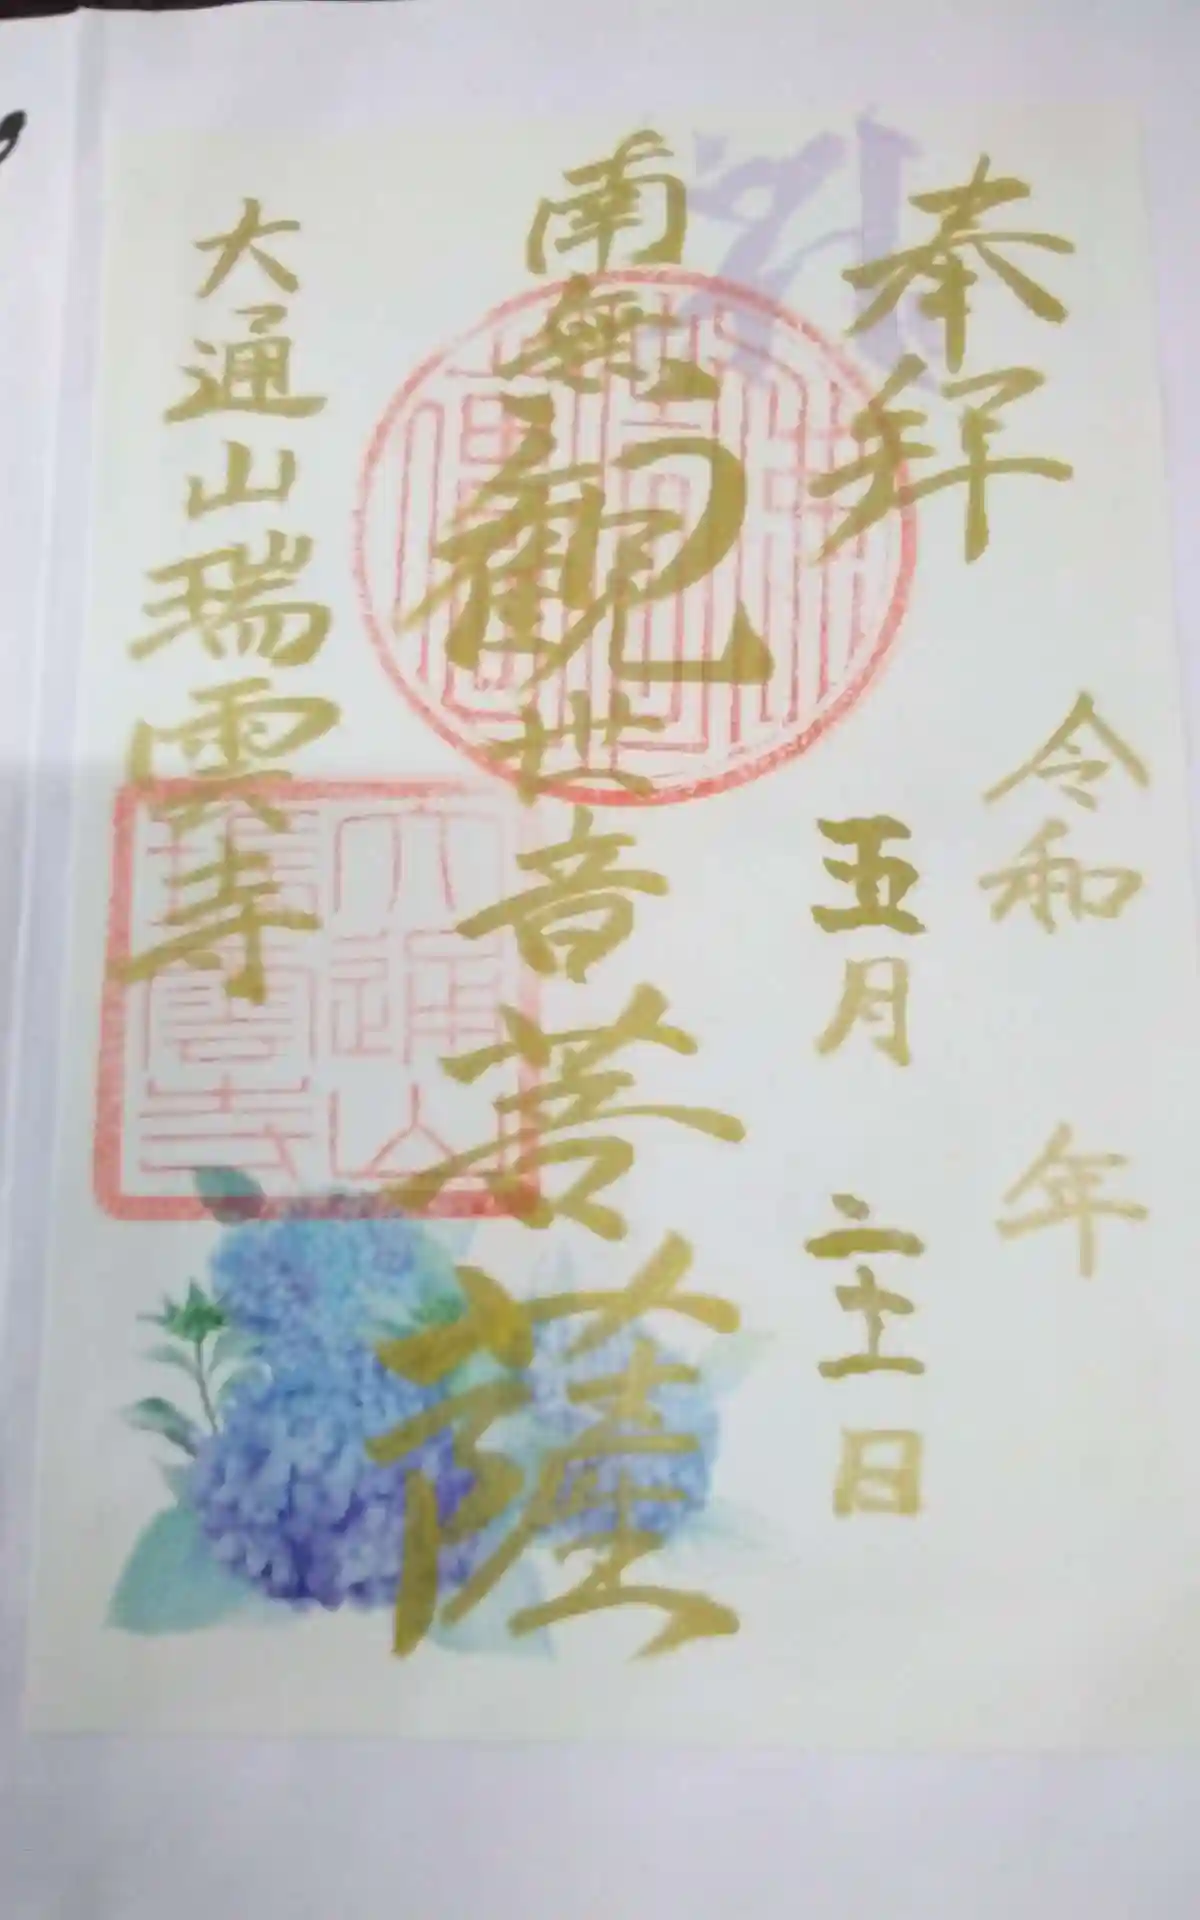 奉拝
令和 年
五月 二十一日
南無観世音菩薩
大通山瑞雲寺
大通山
瑞雲寺